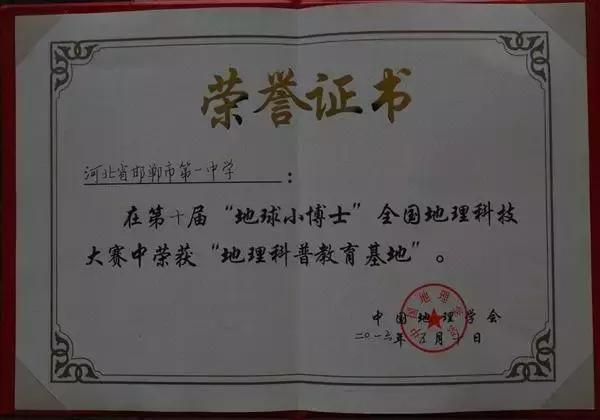 荣誉证书
河北省邯郸市第一中学：
在第十届“地球小博士”全国地理科技
大赛中荣获“地理科普教育基地”。
中国地理学会
二〇一六年 月 日